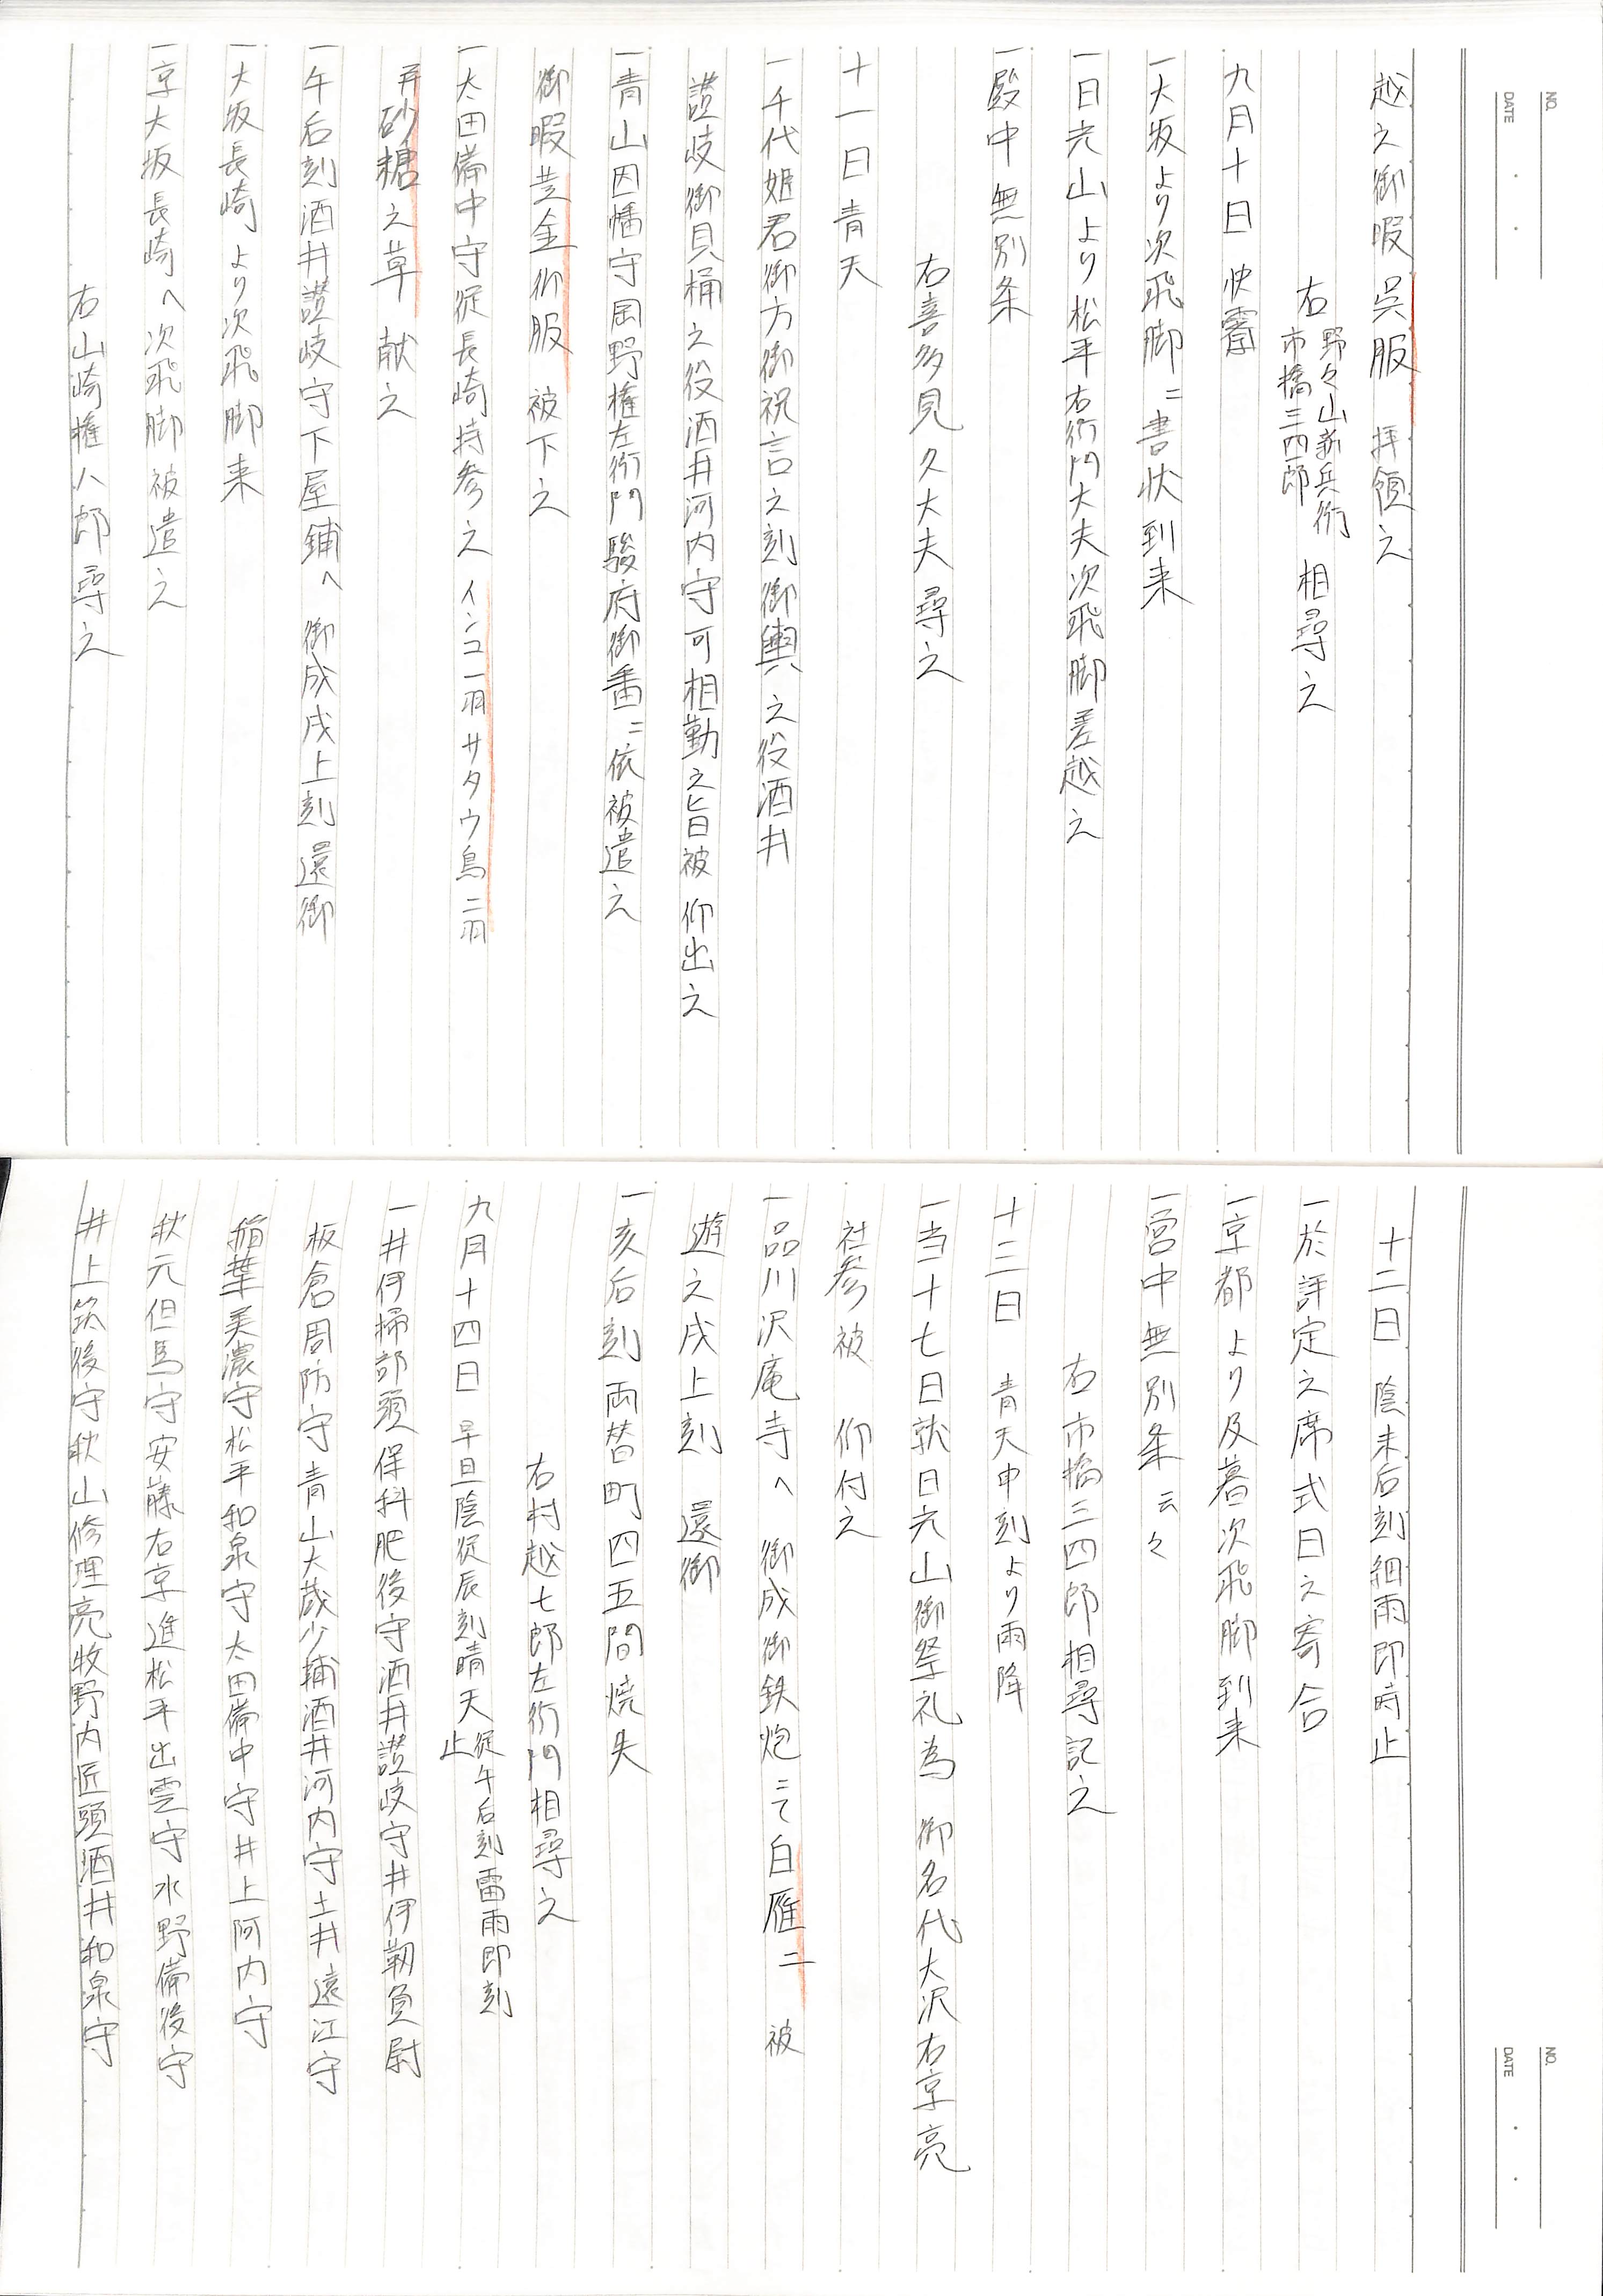 NO.
DATE
越之御暇呉服拝領之
右 野々山新兵衛 市橋三四郎 相尋之
九月十日 快霽
一大坂より次飛脚ニ書状到来
一日光山より松平右衛門大夫次飛脚差越之
一殿中無別条
右喜多見久大夫尋之
十一日青天
一千代姫君御方御祝言之刻御輿之役酒井
讃岐御貝桶之役酒井河内守可相勤之旨被 仰出之
一青山因幡守岡野権左衛門駿府御番ニ依被遣之
御暇黄金御服被下之
一太田備中守従長崎持参之インコ一羽サタウ鳥二羽
并砂糖之草 献之
一午后刻酒井讃岐守下屋鋪へ 御成戌上刻還御
一大坂長崎より次飛脚来
一京大坂長崎へ次飛脚被遣之
右山崎権八郎尋之
NO.
DATE
十二日 陰未后刻細雨即時止
一於評定之席式日之寄合
一京都より及暮次飛脚到来
一営中無別条云々
右市橋三四郎相尋記之
十三日 青天申刻より雨降
一当十七日就日光山御祭礼為 御名代大沢右京亮
社参被 仰付之
一品川沢庵寺へ 御成御鉄炮ニて白雁二 被
遊之戌上刻 還御
一亥后刻両替町四五間焼失
右村越七郎左衛門相尋之
九月十四日 早旦陰従辰刻晴天 従午后刻雷雨即刻止
一井伊掃部頭保科肥後守酒井讃岐守井伊靱負尉
板倉周防守青山大蔵少輔酒井河内守土井遠江守
稲葉美濃守松平和泉守太田備中守井上河内守
秋元但馬守安藤右京進松平出雲守水野備後守
井上筑後守秋山修理亮牧野内匠頭酒井和泉守